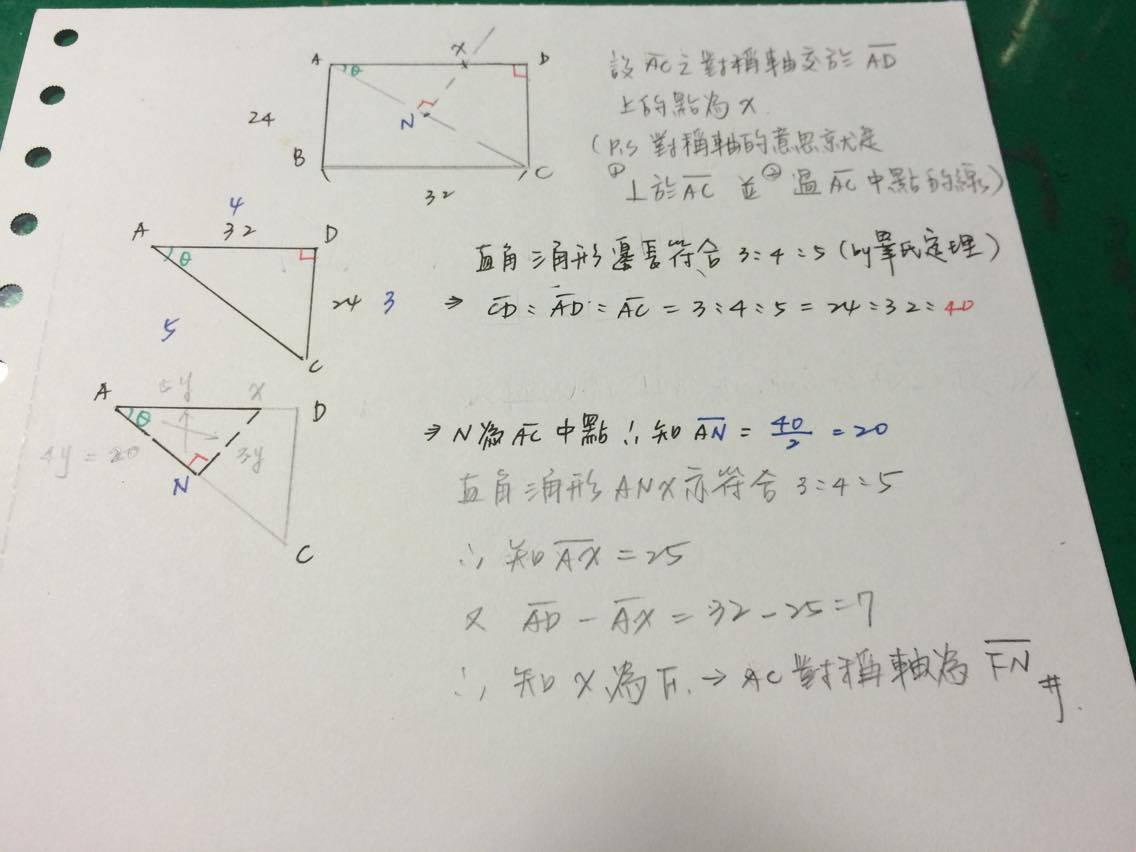 A θ X D
24 N
B C
32
設 AC 之對稱軸交於 AD
上的點為 X
(P.S 對稱軸的意思就是
①⊥於 AC 並 ②過 AC 中點的線)
4
A 32 D
θ
24 3
5
C
直角三角形邊長符合 3:4:5 (by畢氏定理)
⇒ CD : AD : AC = 3:4:5 = 24:32:40
A 5y X D
θ
4y = 20 3y
N
C
⇒ N為 AC 中點 ∴知 AN = 40/2 = 20
直角三角形 ANX 亦符合 3:4:5
∴ 知 AX = 25
又 AD - AX = 32 - 25 = 7
∴ 知 X 為 F. → AC 對稱軸為 FN #